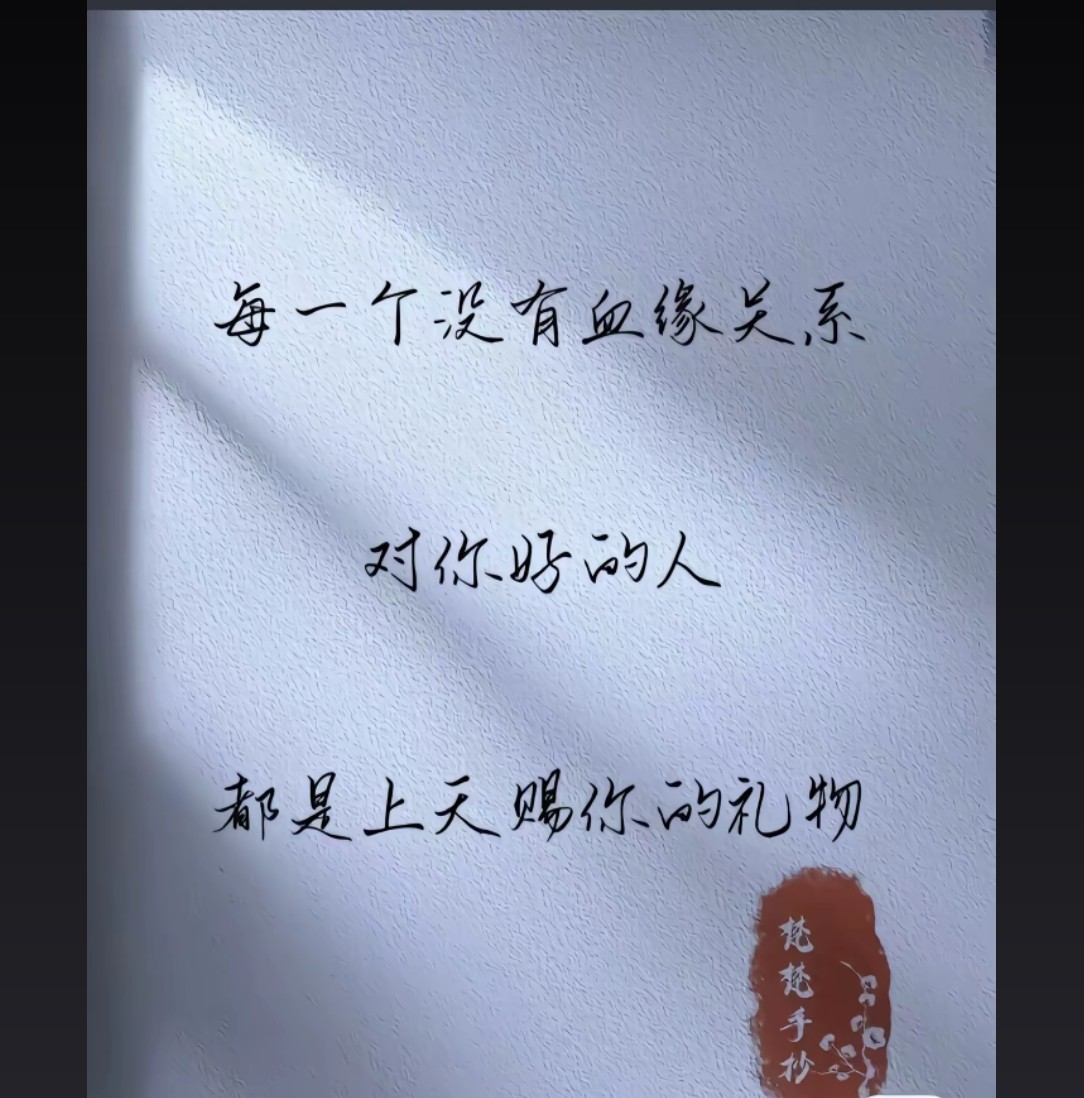 每一个没有血缘关系
对你好的人
都是上天赐你的礼物
梵梵手抄